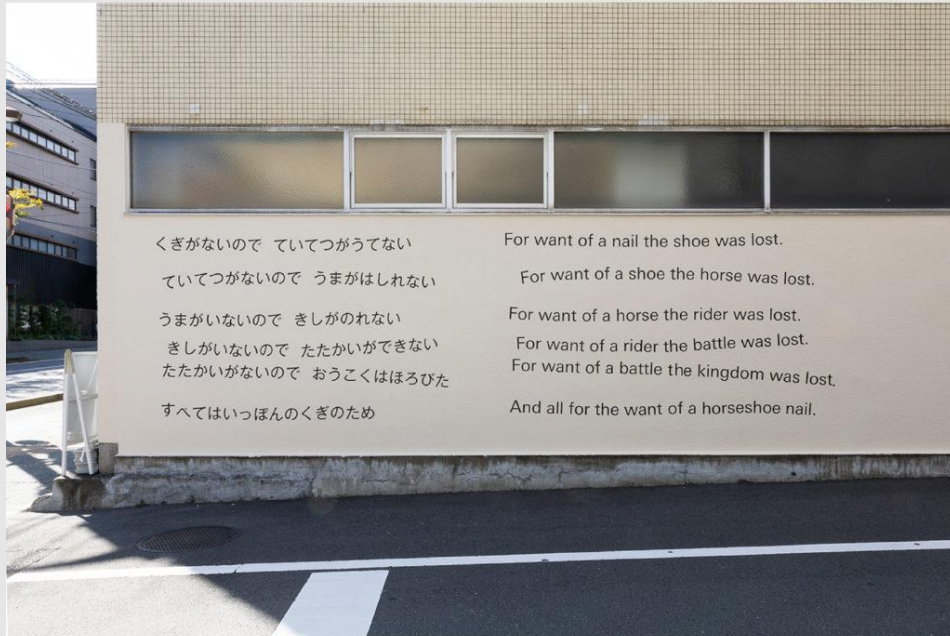 くぎがないので ていてつがうてない
ていてつがないので うまがはしれない
うまがいないので きしがのれない
きしがいないので たたかいができない
たたかいがないので おうこくはほろびた
すべてはいっぽんのくぎのため
For want of a nail the shoe was lost.
For want of a shoe the horse was lost.
For want of a horse the rider was lost.
For want of a rider the battle was lost.
For want of a battle the kingdom was lost.
And all for the want of a horseshoe nail.